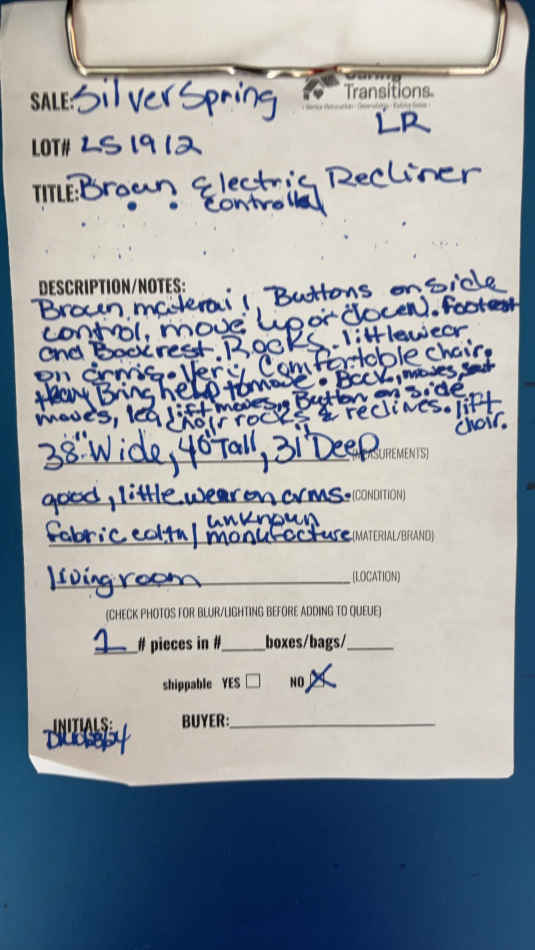 Caring
Transitions.
SALE: Silver Spring
LR
LOT# LS 1912
TITLE: Brown Electric Recliner
controlled
DESCRIPTION/NOTES:
Brown material, Buttons on side
control, move up or down. footrest
and Backrest. Rocks. little wear
on arms. Very Comfortable chair.
Heavy Bring help to move. Back, moves, seat
moves, leg lift moves. Button on side
chair rocks & reclines. lift
chair.
38" Wide, 40" Tall, 31" Deep (MEASUREMENTS)
good, little wear on arms. (CONDITION)
unknown
fabric / manufacture (MATERIAL/BRAND)
living room (LOCATION)
(CHECK PHOTOS FOR BLUR/LIGHTING BEFORE ADDING TO QUEUE)
1 # pieces in # boxes/bags/
shippable YES ☐ NO X
INITIALS: BUYER: